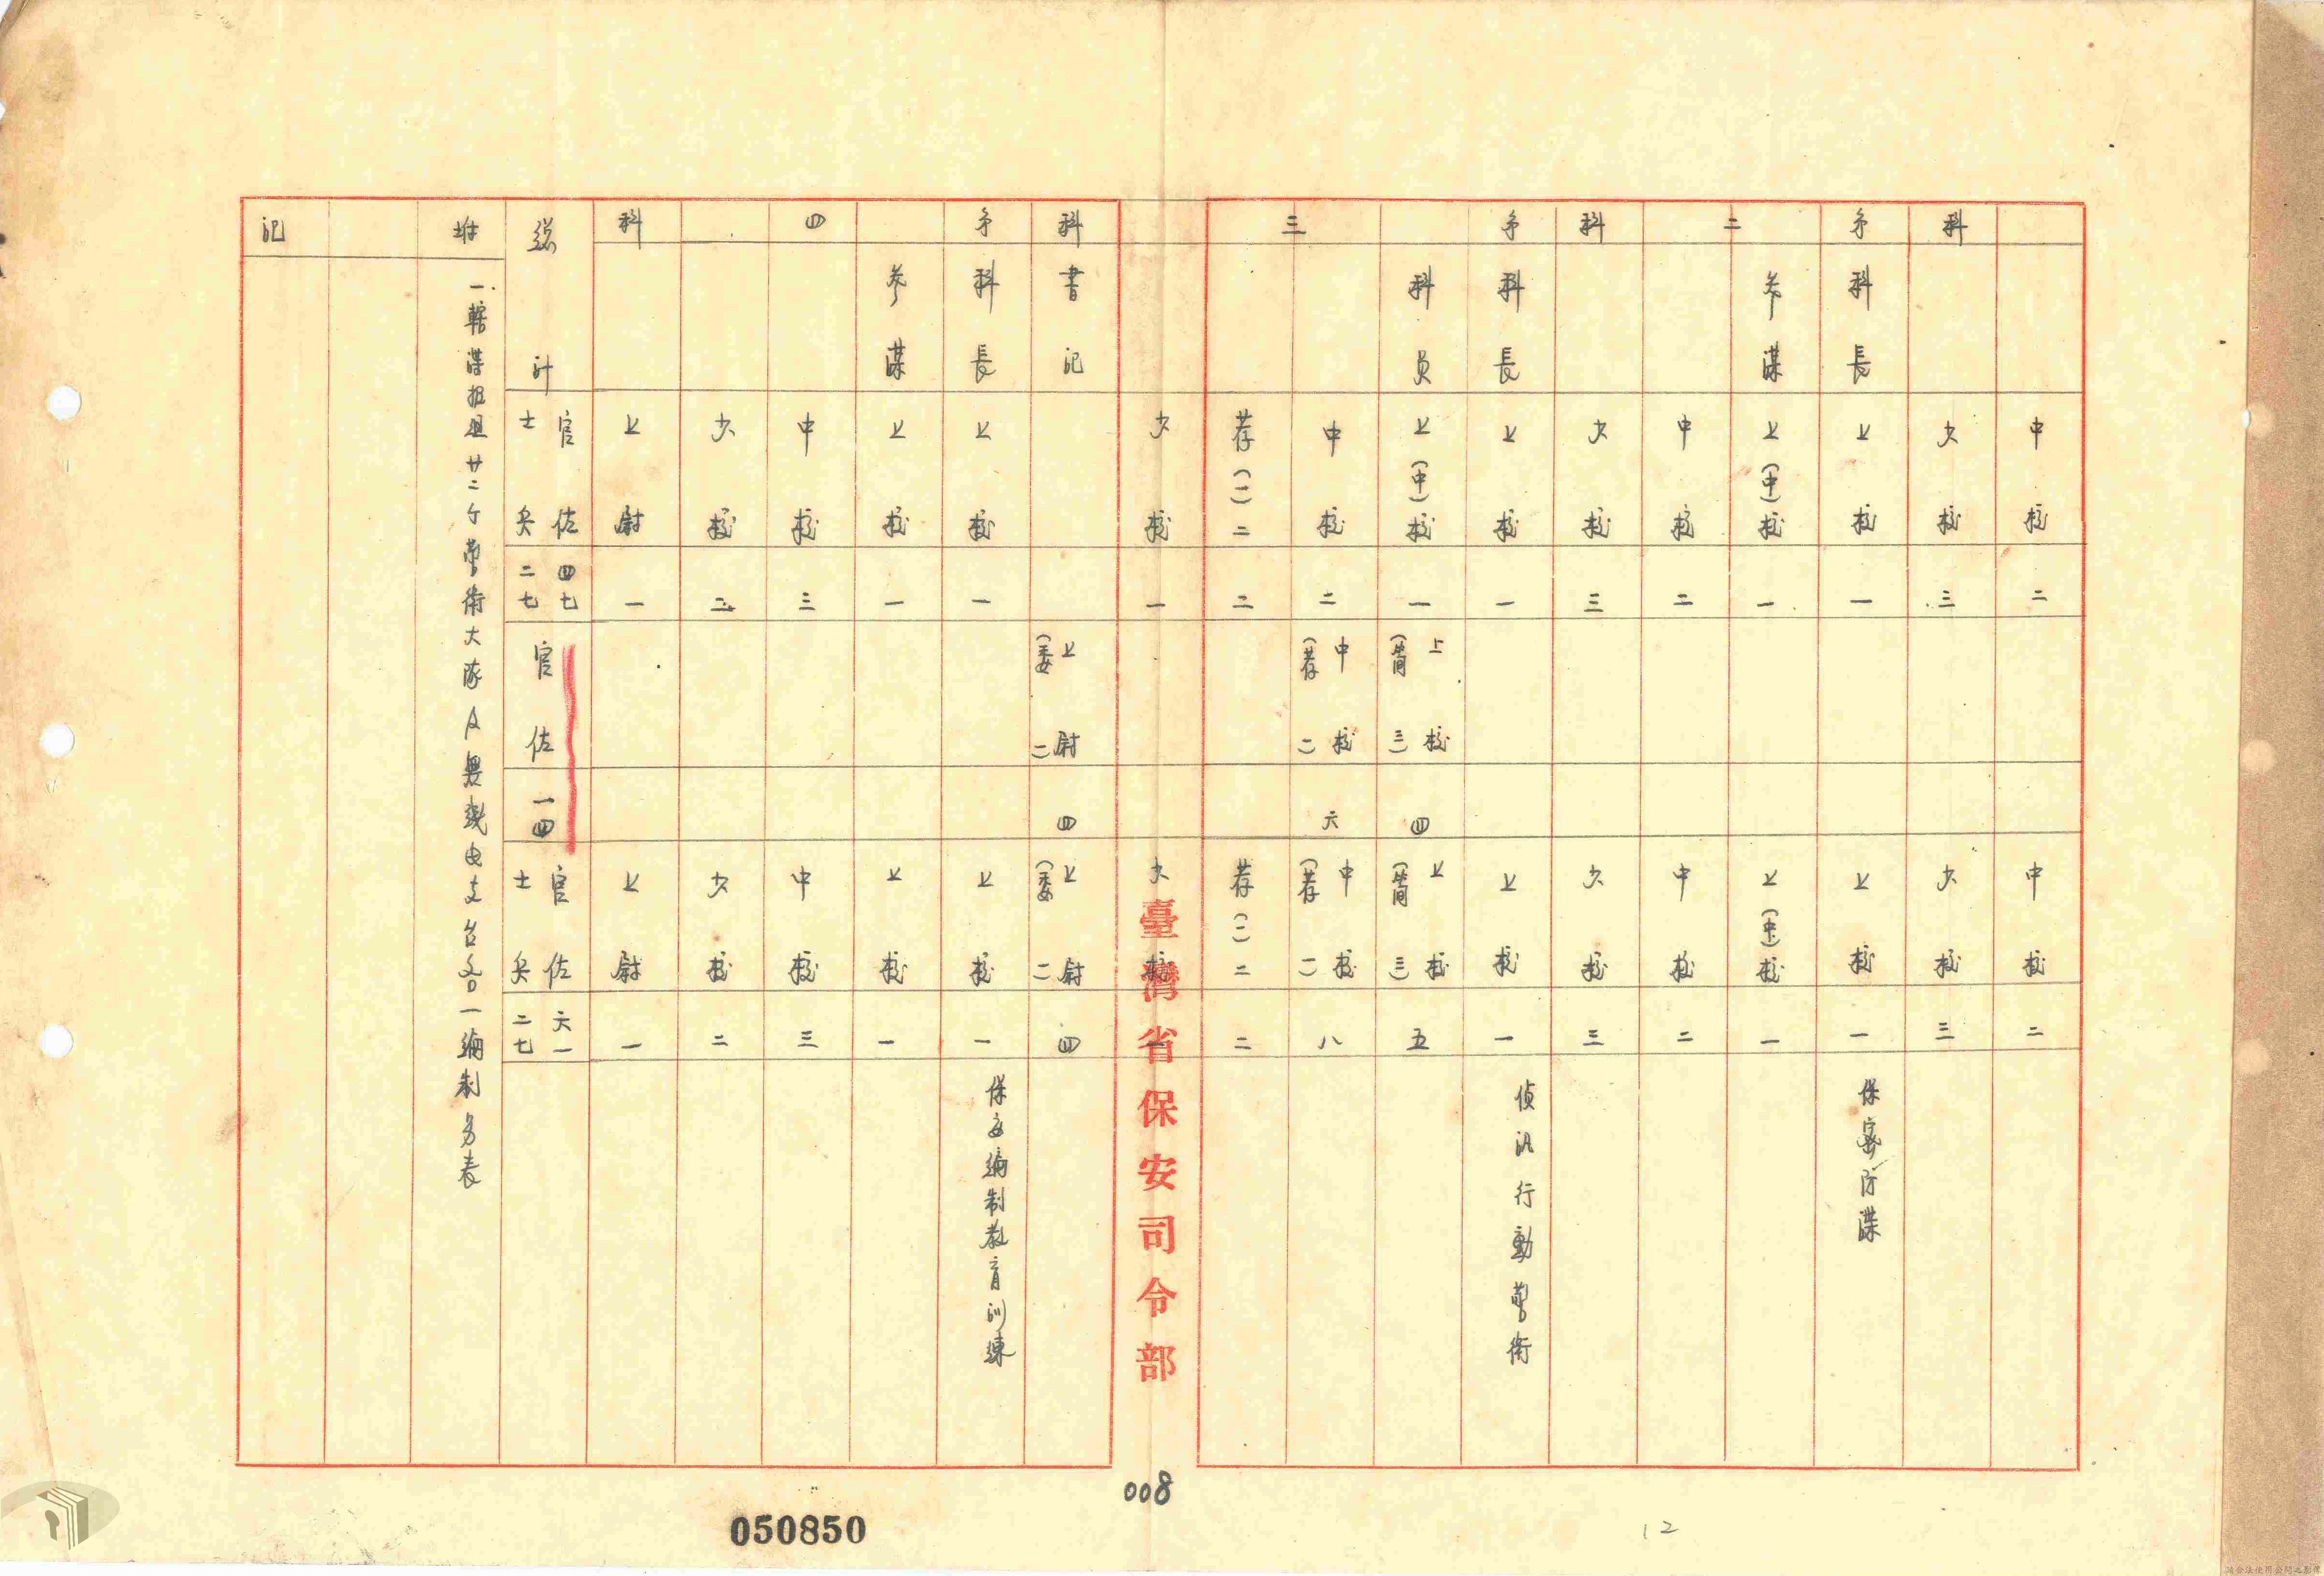 中校 二 中校 二
科 少校 三 少校 三
第 科長 上校 一 上校 一 保密防諜
參謀 上(中)校 一 上(中)校 一
二 中校 二 中校 二
科 少校 三 少校 三
第 科長 上校 一 上校 一 偵汛行動警衛
科員 上(中)校 一 上校(簡三) 四 上校(簡三) 五
三 中校 二 中校(荐二) 六 中校(荐二) 八
荐(一)二 二 荐(一)二 二
少校 一 少校 一
臺灣省保安司令部
科 書記 上尉(委二) 四 上尉(委二) 四
第 科長 上校 一 上校 一 保安編制教育訓練
參謀 上校 一 上校 一
四 中校 三 中校 三
少校 二 少校 二
科 上尉 一 上尉 一
總計 官佐 四七 官佐 一四 官佐 六一
士兵 二七 士兵 二七
附 一.轄諜報組廿二个警衛大隊及無線電支台各一編制另表
記
008
050850
12